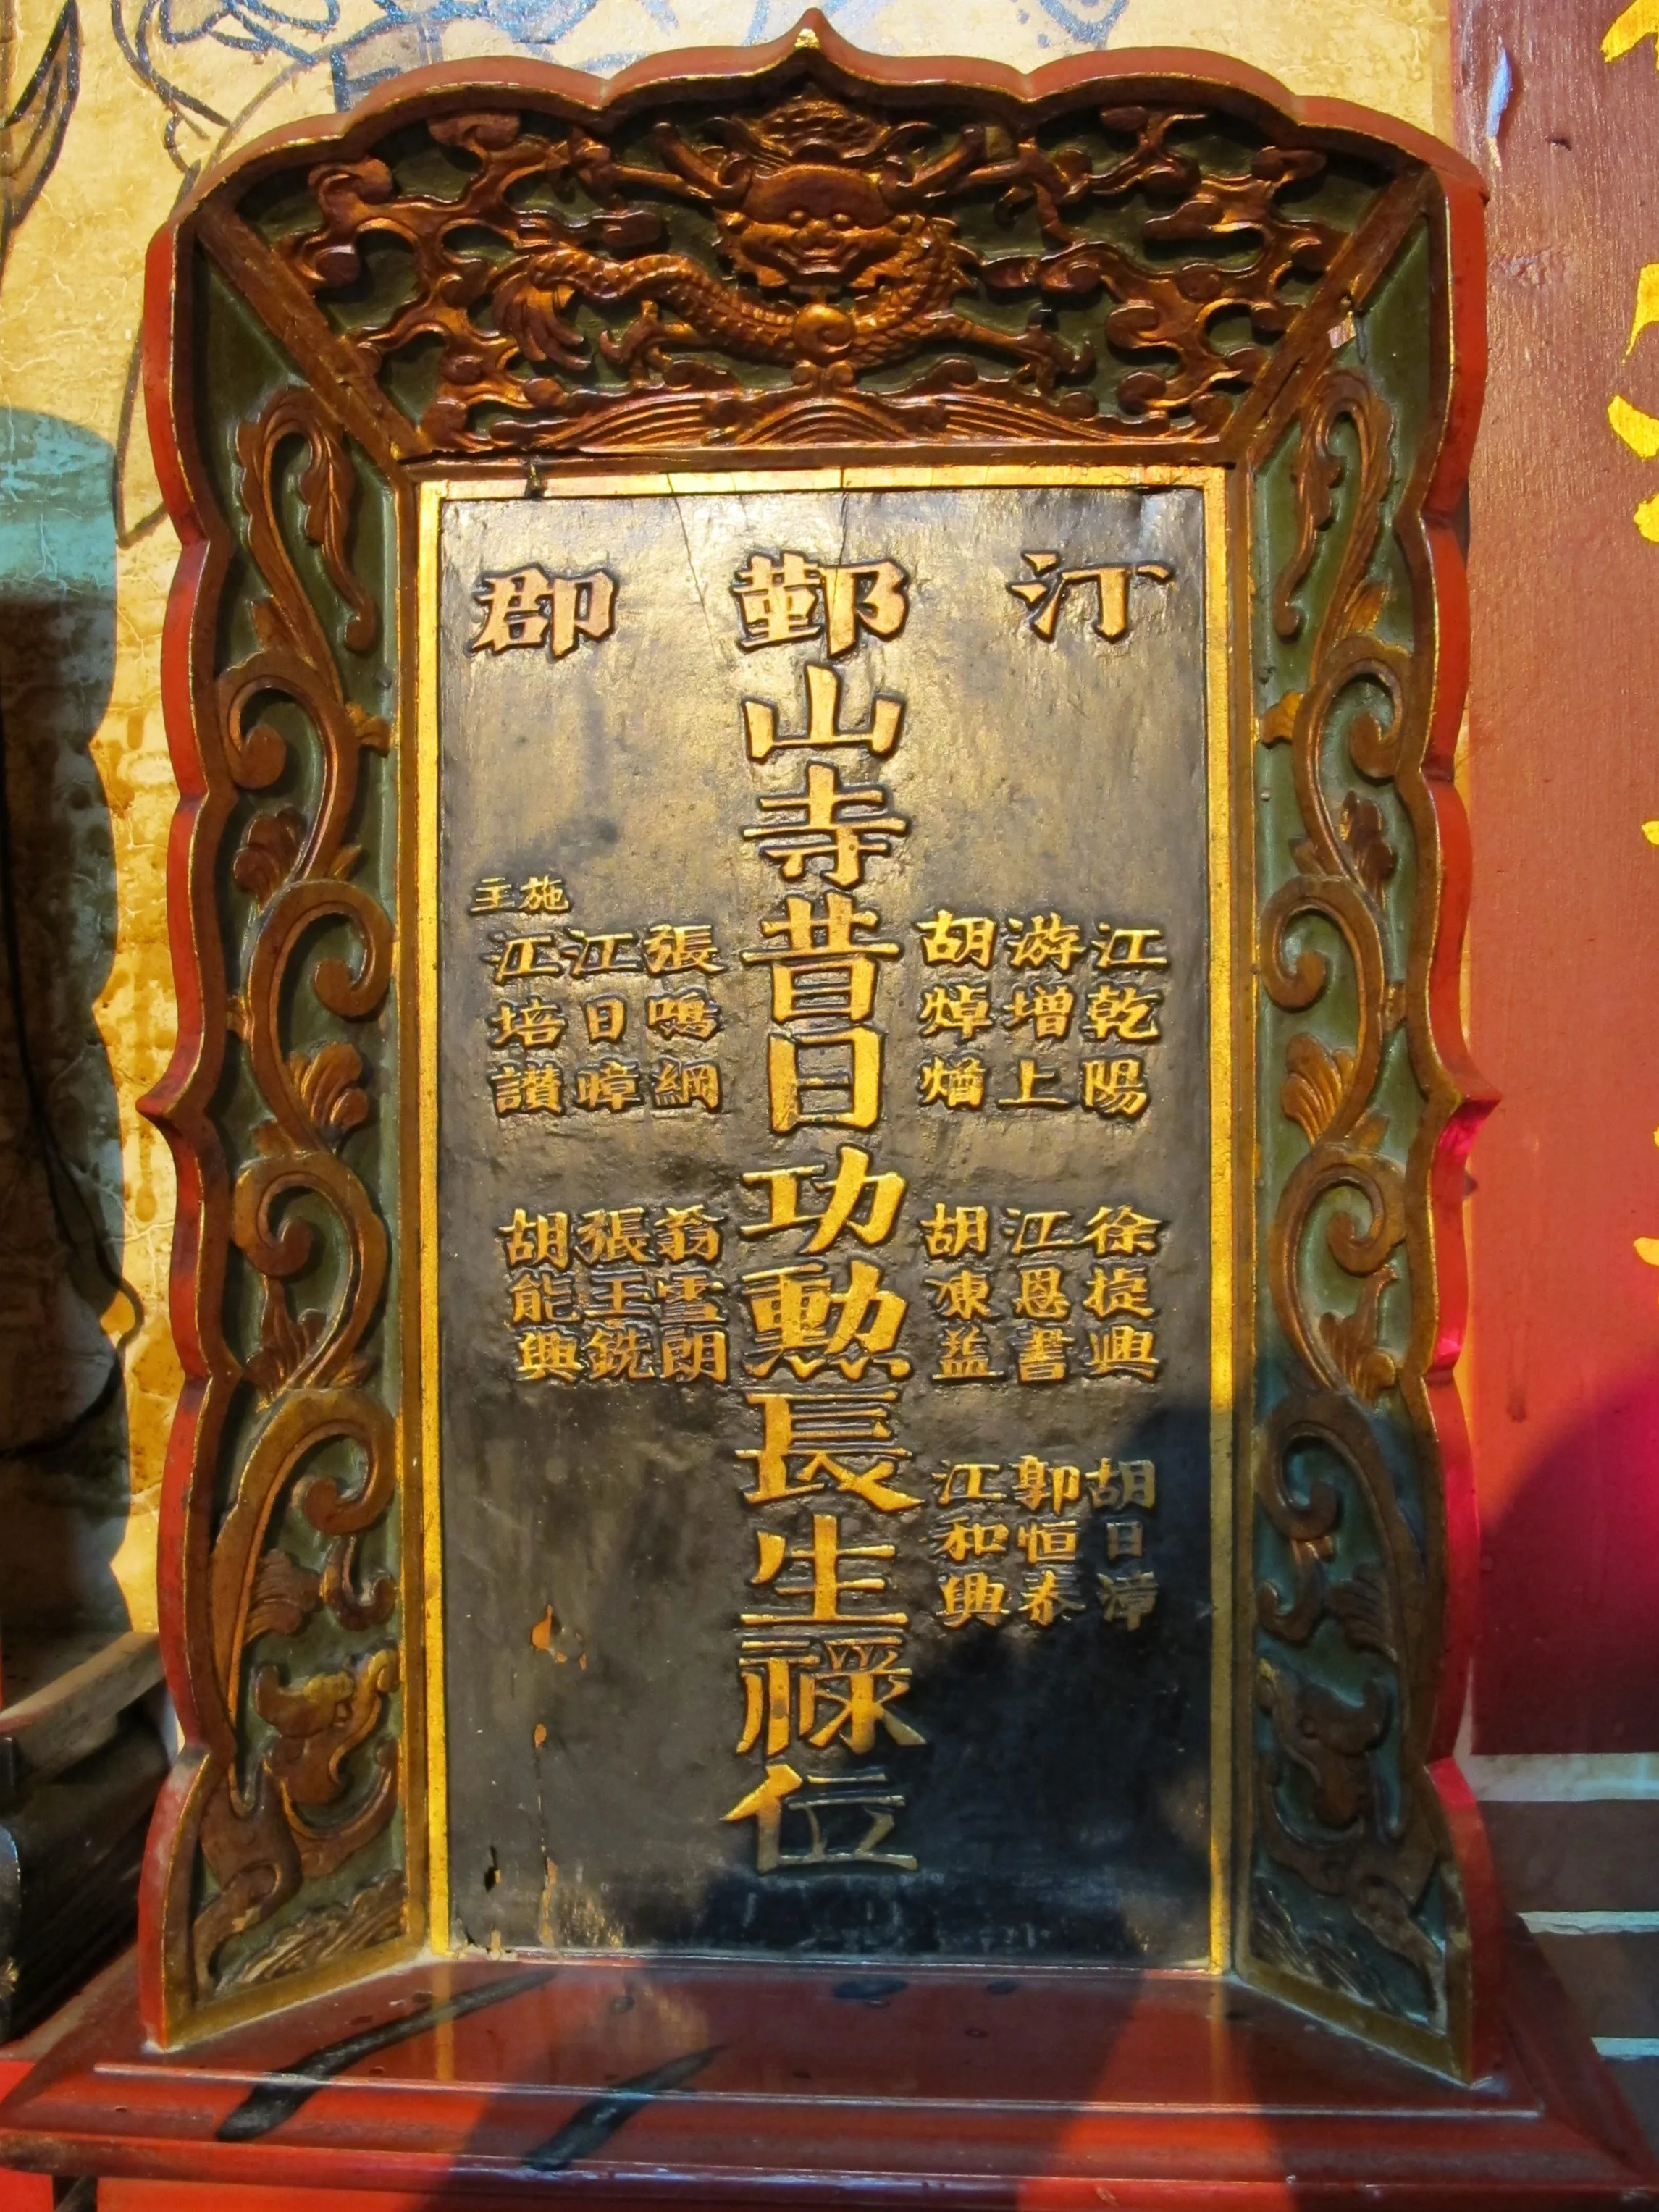 汀郡
江乾陽
游增上
胡焯
徐捷興
江恩書
胡凍益
胡日漳
郭恒泰
江和興
鄞山寺昔日功勳長生祿位
張鳴綱
江日暲
施主
江培讃
翁雪朗
張玉銑
胡能興